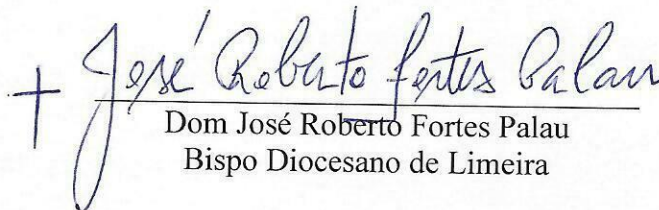 + José Roberto Fortes Palau
Dom José Roberto Fortes Palau
Bispo Diocesano de Limeira